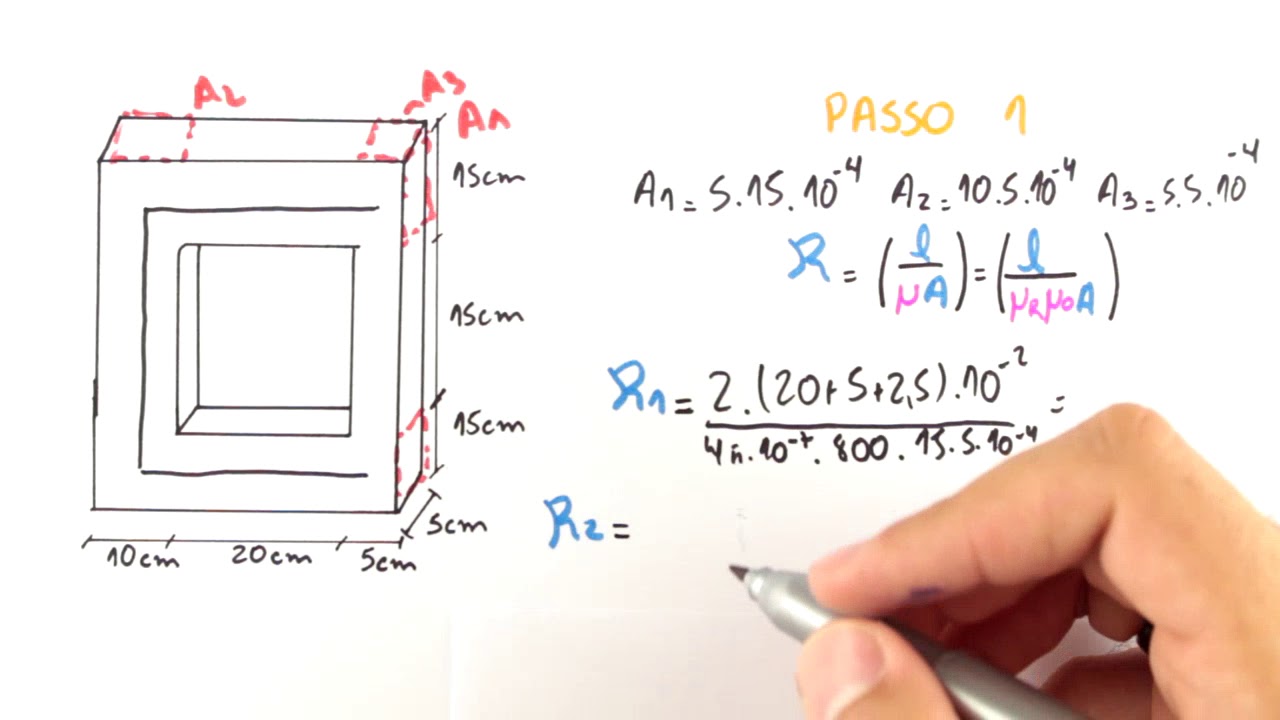 A2
A3
A1
15cm
15cm
15cm
5cm
10cm 20cm 5cm
PASSO 1
A1 = 5.15.10^-4 A2 = 10.5.10^-4 A3 = 5.5.10^-4
R = (l/μA) = (l/μRμ0A)
R1 = 2.(20+5+2,5).10^-2 =
4π.10^-7.800.15.5.10^-4
R2 =